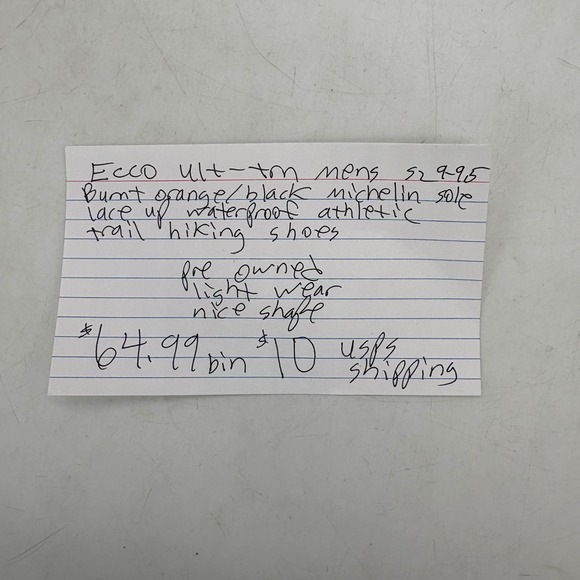 Ecco ult-trn mens sz 9-9.5
Burnt orange/black michelin sole
lace up waterproof athletic
trail hiking shoes
pre owned
light wear
nice shape
$64.99 bin $10 usps
shipping